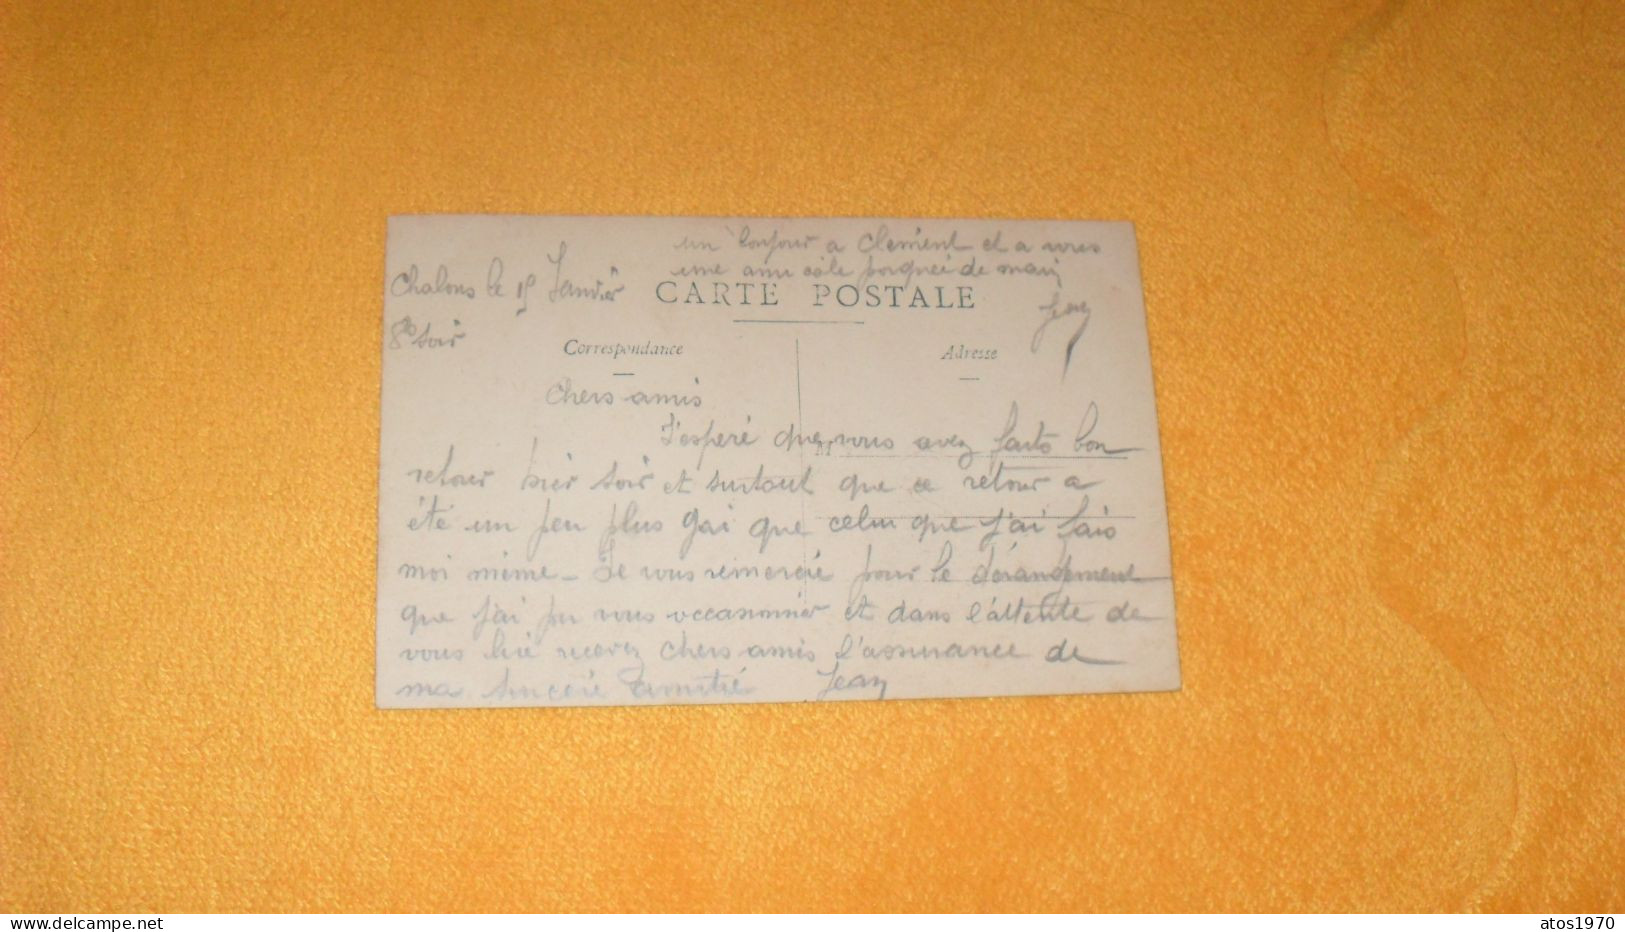 un bonjour a Clement et a vous
une amicale poignei de main
Jean
Chalons le 15 Janvier
8h soir
CARTE POSTALE
Correspondance
Adresse
Chers amis
M
J'esperé que vous avez faits bon
retour hier soir et surtout que ce retour a
été un peu plus gai que celui que j'ai fais
moi même - Je vous remercie pour le dérangement
que j'ai pu vous occasionnier et dans l'attente de
vous lire recevez chers amis l'assurance de
ma sincere amitié Jean
www.delcampe.net
atos1970